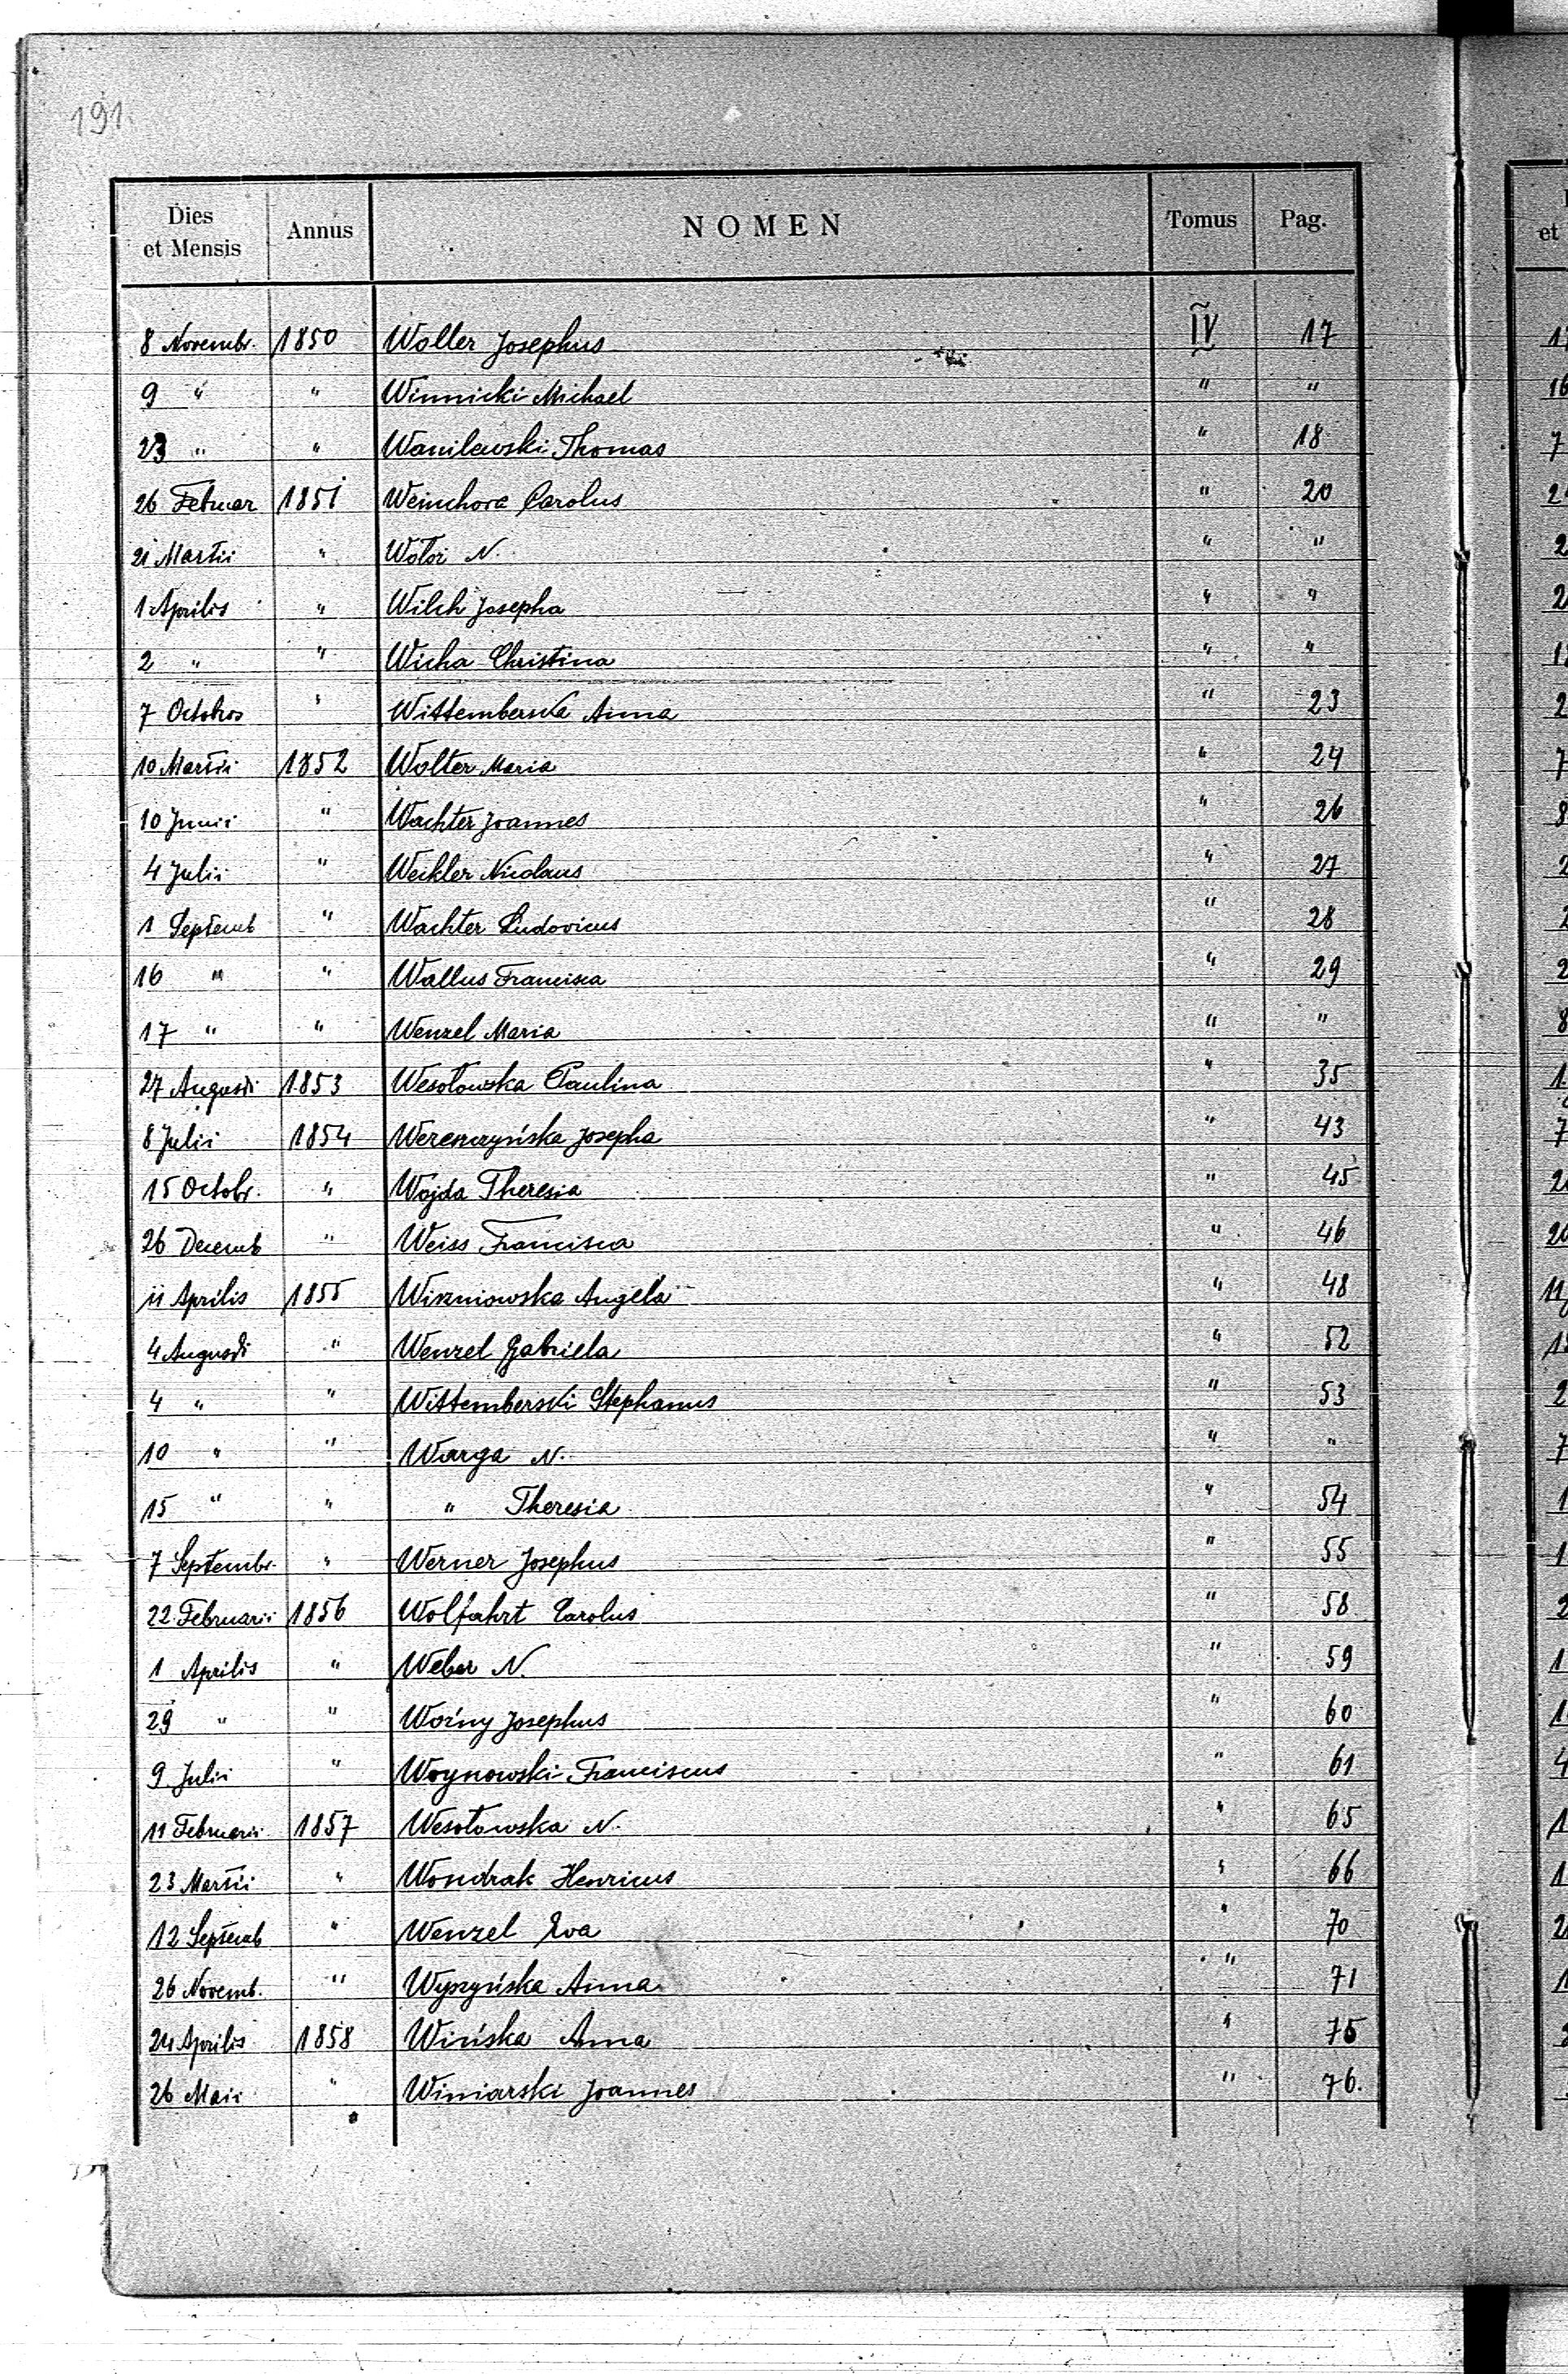 191.
Dies et Mensis Annus NOMEN Tomus Pag.
8 Novembr. 1850 Woller Josephus IV 17
9 " " Winnicki Michael " "
23 " " Wanilewski Thomas " 18
26 Februar 1851 Weinchora Carolus " 20
21 Martii " Wołoi N. " "
1 Aprilis " Wilch Josepha " "
2 " " Wicha Christina " "
7 Octobros " Wittemberska Anna " 23
10 Martii 1852 Wolter Maria " 24
10 Junii " Wachter Joannes " 26
4 Julii " Weikler Nicolaus " 27
1 Septemb " Wachter Ludovicus " 28
16 " " Wallus Francisca " 29
17 " " Wenzel Maria " "
27 Augusti 1853 Wesołowska Paulina " 35
8 Julii 1854 Wereszczyńska Josepha " 43
15 Octobr. " Wojda Theresia " 45
26 Decemb " Weiss Francisca " 46
11 Aprilis 1855 Wiszniowska Angela " 48
4 Augusti " Wenzel Gabriela " 52
4 " " Wittemberski Stephanus " 53
10 " " Warga N. " "
15 " " " Theresia " 54
7 Septembr. " Werner Josephus " 55
22 Februarii 1856 Wolfahrt Carolus " 58
1 Aprilis " Weber N. " 59
29 " " Woźny Josephus " 60
9 Julii " Woynowski Franciscus " 61
11 Februarii 1857 Wesołowska N. " 65
23 Martii " Wondrak Henricus " 66
12 Septemb " Wenzel Eva " 70
26 Novemb. " Wyszyńska Anna " 71
24 Aprilis 1858 Wińska Anna " 75
26 Maii " Winiarski Joannes " 76.